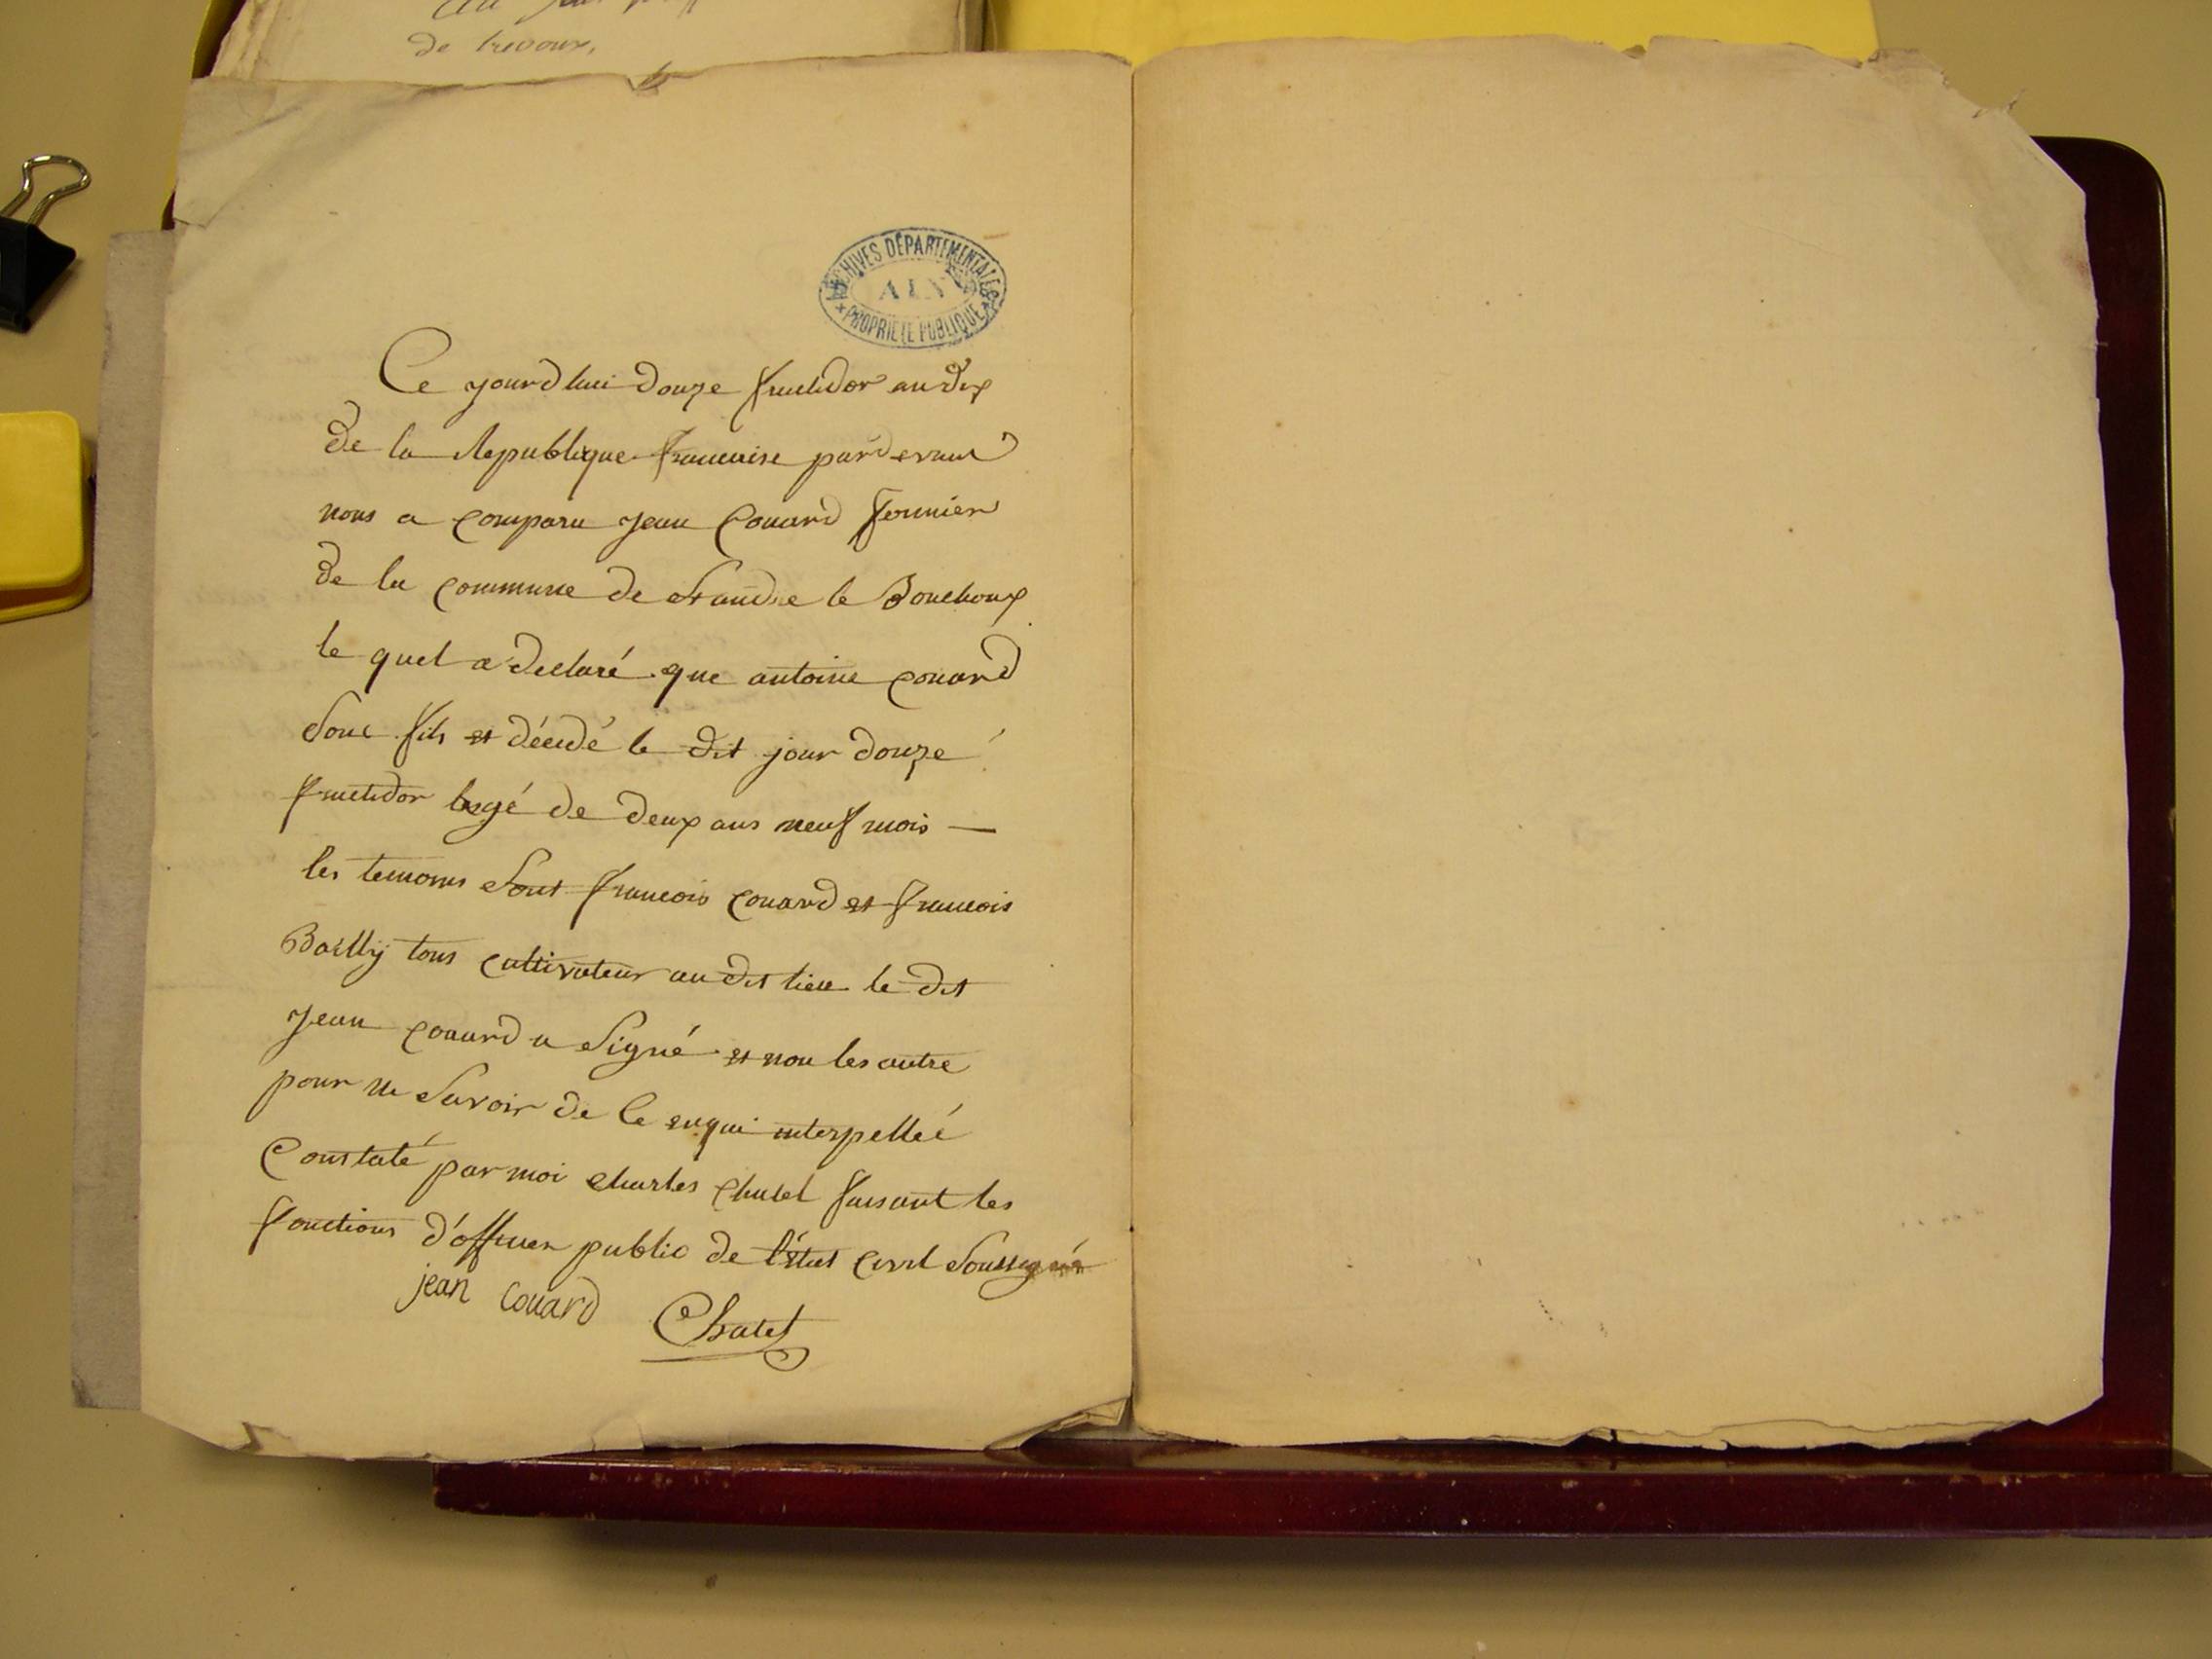 de trevoux,
ARCHIVES DÉPARTEMENTALES
AIN
PROPRIÉTÉ PUBLIQUE
Ce yourdhui douze fructidor an dix
de la Republique francaise pardevant
nous a comparu jean Couard fermier
de la commune de St andré le Bouchoux
le quel a declaré que antoine couard
Sont fils et décédé le dit jour douze
fructidor agé de deux ans neuf mois —
les temoins Sont francois couard et francois
Bailly tous cultivateur au dit lieu le dit
jean couard a Signé et non les autre
pour ne Savoir de ce enqui interpelleé
Constaté par moi charles chatel faisant les
fonctions d'officier public de l'état civil Soussigné
jean couard Chatel